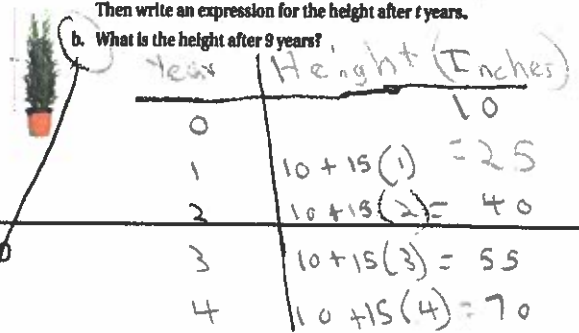 Then write an expression for the height after t years.
b. What is the height after 9 years?
Year Heinght (Inches)
0 10
1 10 + 15(1) = 25
2 10 + 15(2) = 40
3 10 + 15(3) = 55
4 10 + 15(4) = 70